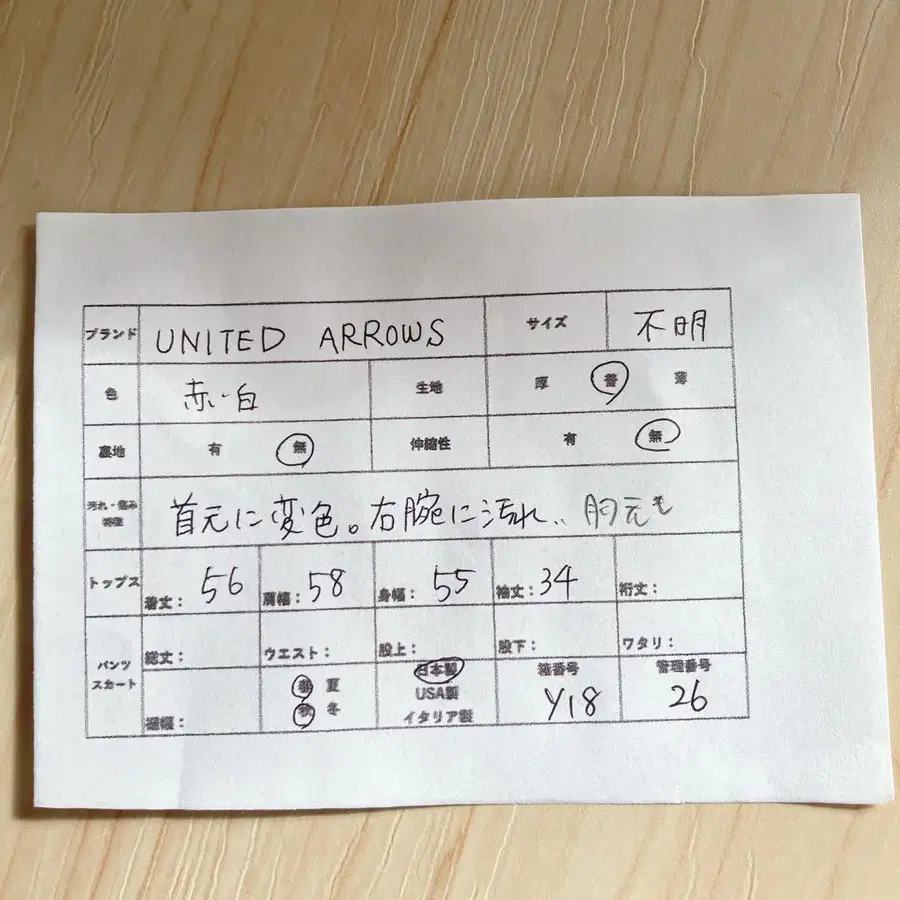 ブランド UNITED ARROWS サイズ 不明
色 赤・白 生地 厚 普 薄
裏地 有 無 伸縮性 有 無
汚れ・傷み 首元に変色。右腕に汚れ、胸元も
トップス 着丈: 56 肩幅: 58 身幅: 55 袖丈: 34 裄丈:
パンツ スカート 総丈: ウエスト: 股上: 股下: ワタリ:
裾幅: 春 夏 秋 冬 日本製 USA製 イタリア製 箱番号 Y18 管理番号 26